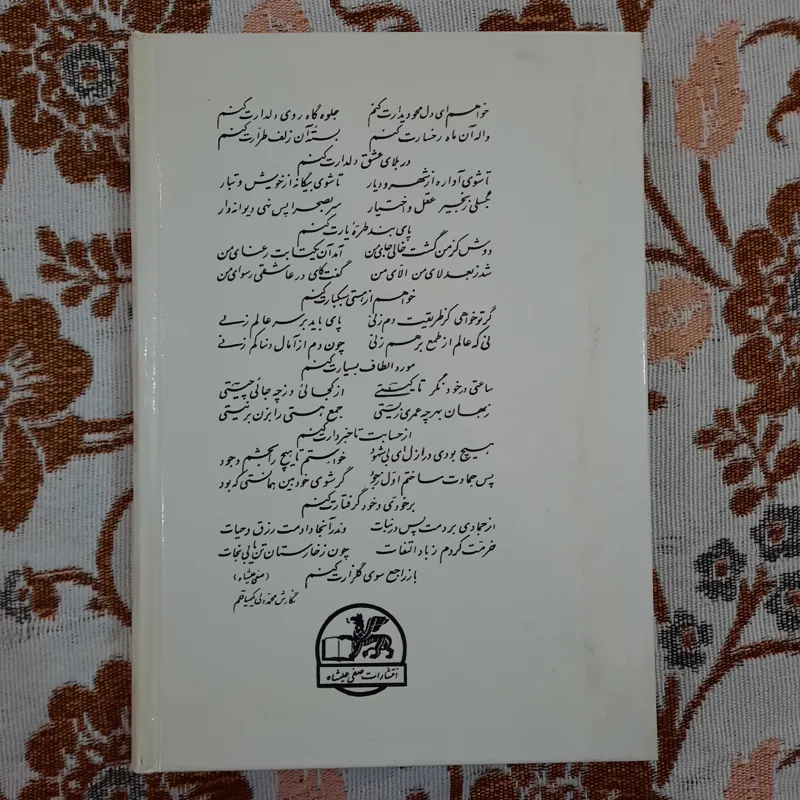 خواهم ای دل محو دیدارت کنم جلوه گاه روی دلدارت کنم
واله آن ماه رخسارت کنم بسته آن زلف طرارت کنم
در بلای عشق دلدارت کنم
تا شوی آواره از شهر و دیار تا شوی بیگانه از خویش و تبار
بگسلی زنجیر عقل و اختیار سر بصحرا پس نهی دیوانه وار
پای بند طره یارت کنم
دوش کز من گشت خالی جای من آمد آن یکتا بت رعنای من
شد ز بعد لای من الای من گفت کای در عاشقی رسوای من
خواهم از هستی سبکبارت کنم
گر تو خواهی کز طریقت دم زنی پای باید بر سر عالم زنی
نی که عالم از طمع بر هم زنی چون دم از آمال دنیا کم زنی
مورد الطاف بسیارت کنم
ساعتی در خود نگر تا کیستی از کجائی وز چه جائی چیستی
در جهان بهر چه عمری زیستی جمع هستی را بزن بر نیستی
از حسابت تا خبردارت کنم
هیچ بودی در ازل ای بی شهود خواستم تا هیچ را بخشم وجود
پس جمادت ساختم اول ز جود گر شوی خودبین همانستی که بود
بر خودی خود گرفتارت کنم
از جمادی بردمت پس در نبات وندر آنجا دادمت رزق و حیات
خرمت کردم ز باد التفات چون ز خارستان تن یابی نجات
باز راجع سوی گلزارت کنم (صفی علیشاه)
نگارش محمد ولی کیمیاقلم
انتشارات صفی علیشاه